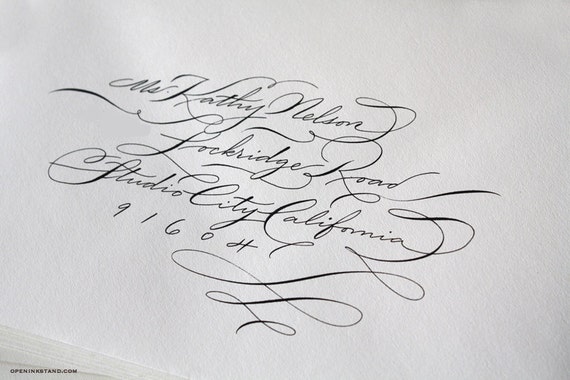 Ms. Kathy Nelson
Lockridge Road
Studio City California
91604
OPENINKSTAND.COM